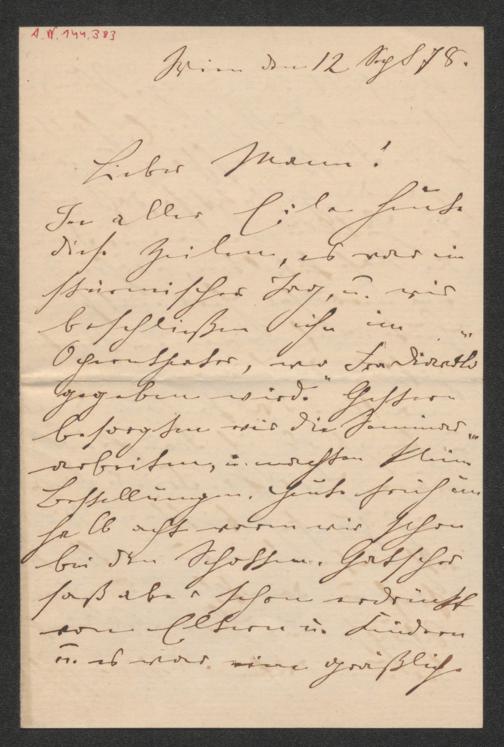 A.N. 144.383
Wien den 12 Sept 78.
Lieber Mann!
In aller Eile heute
diese Zeilen, es war ein
stürmischer Tag, u. wir
beschließen ihn im
Operntheater, wo "Fra Diavolo"
gegeben wird. Gestern
besorgten wir die Seminar
arbeiten, u. machten kleine
Bestellungen. Heute früh um
halb acht waren wir schon
bei den Schotten. Gatscher
saß aber schon erdrückt
von Eltern u. Kindern
u. es war eine gräßliche